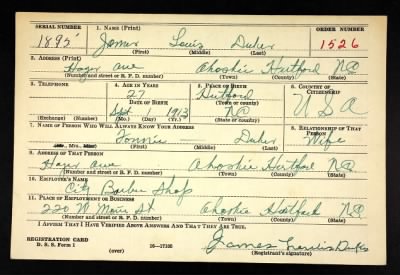 SERIAL NUMBER 1. NAME (Print) ORDER NUMBER
1895 James Louis 1526
(First) (Middle) (Last)
2. ADDRESS (Print)
Hayes Ave Ahoskie Hertford NC
(Number and street or R. F. D. number) (Town) (County) (State)
3. TELEPHONE 4. AGE IN YEARS 5. PLACE OF BIRTH 6. COUNTRY OF CITIZENSHIP
27 Hertford
DATE OF BIRTH
Sept. 1 1913 NC USA
(Exchange) (Number) (Mo.) (Day) (Yr.) (State or country)
7. NAME OF PERSON WHO WILL ALWAYS KNOW YOUR ADDRESS 8. RELATIONSHIP OF THAT PERSON
Fannie Wife
(Mr., Mrs., Miss) (First) (Middle) (Last)
9. ADDRESS OF THAT PERSON
Hayes Ave Ahoskie Hertford NC
(Number and street or R. F. D. number) (Town) (County) (State)
10. EMPLOYER'S NAME
City Barber Shop
11. PLACE OF EMPLOYMENT OR BUSINESS
220 W Main St Ahoskie Hertford NC
(Number and street or R. F. D. number) (Town) (County) (State)
I AFFIRM THAT I HAVE VERIFIED ABOVE ANSWERS AND THAT THEY ARE TRUE.
REGISTRATION CARD
D. S. S. Form 1 (over) 16—17105 James Louis
(Registrant's signature)